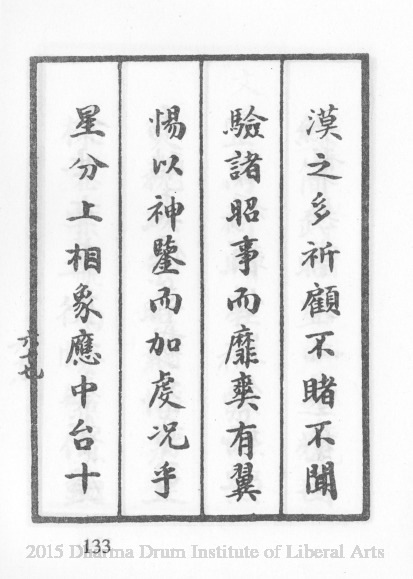 漠之多祈顧不睹不聞
驗諸昭事而靡爽有翼
惕以神鑒而加虔况乎
星分上相象應中台十
六十七
133
2015 Dharma Drum Institute of Liberal Arts